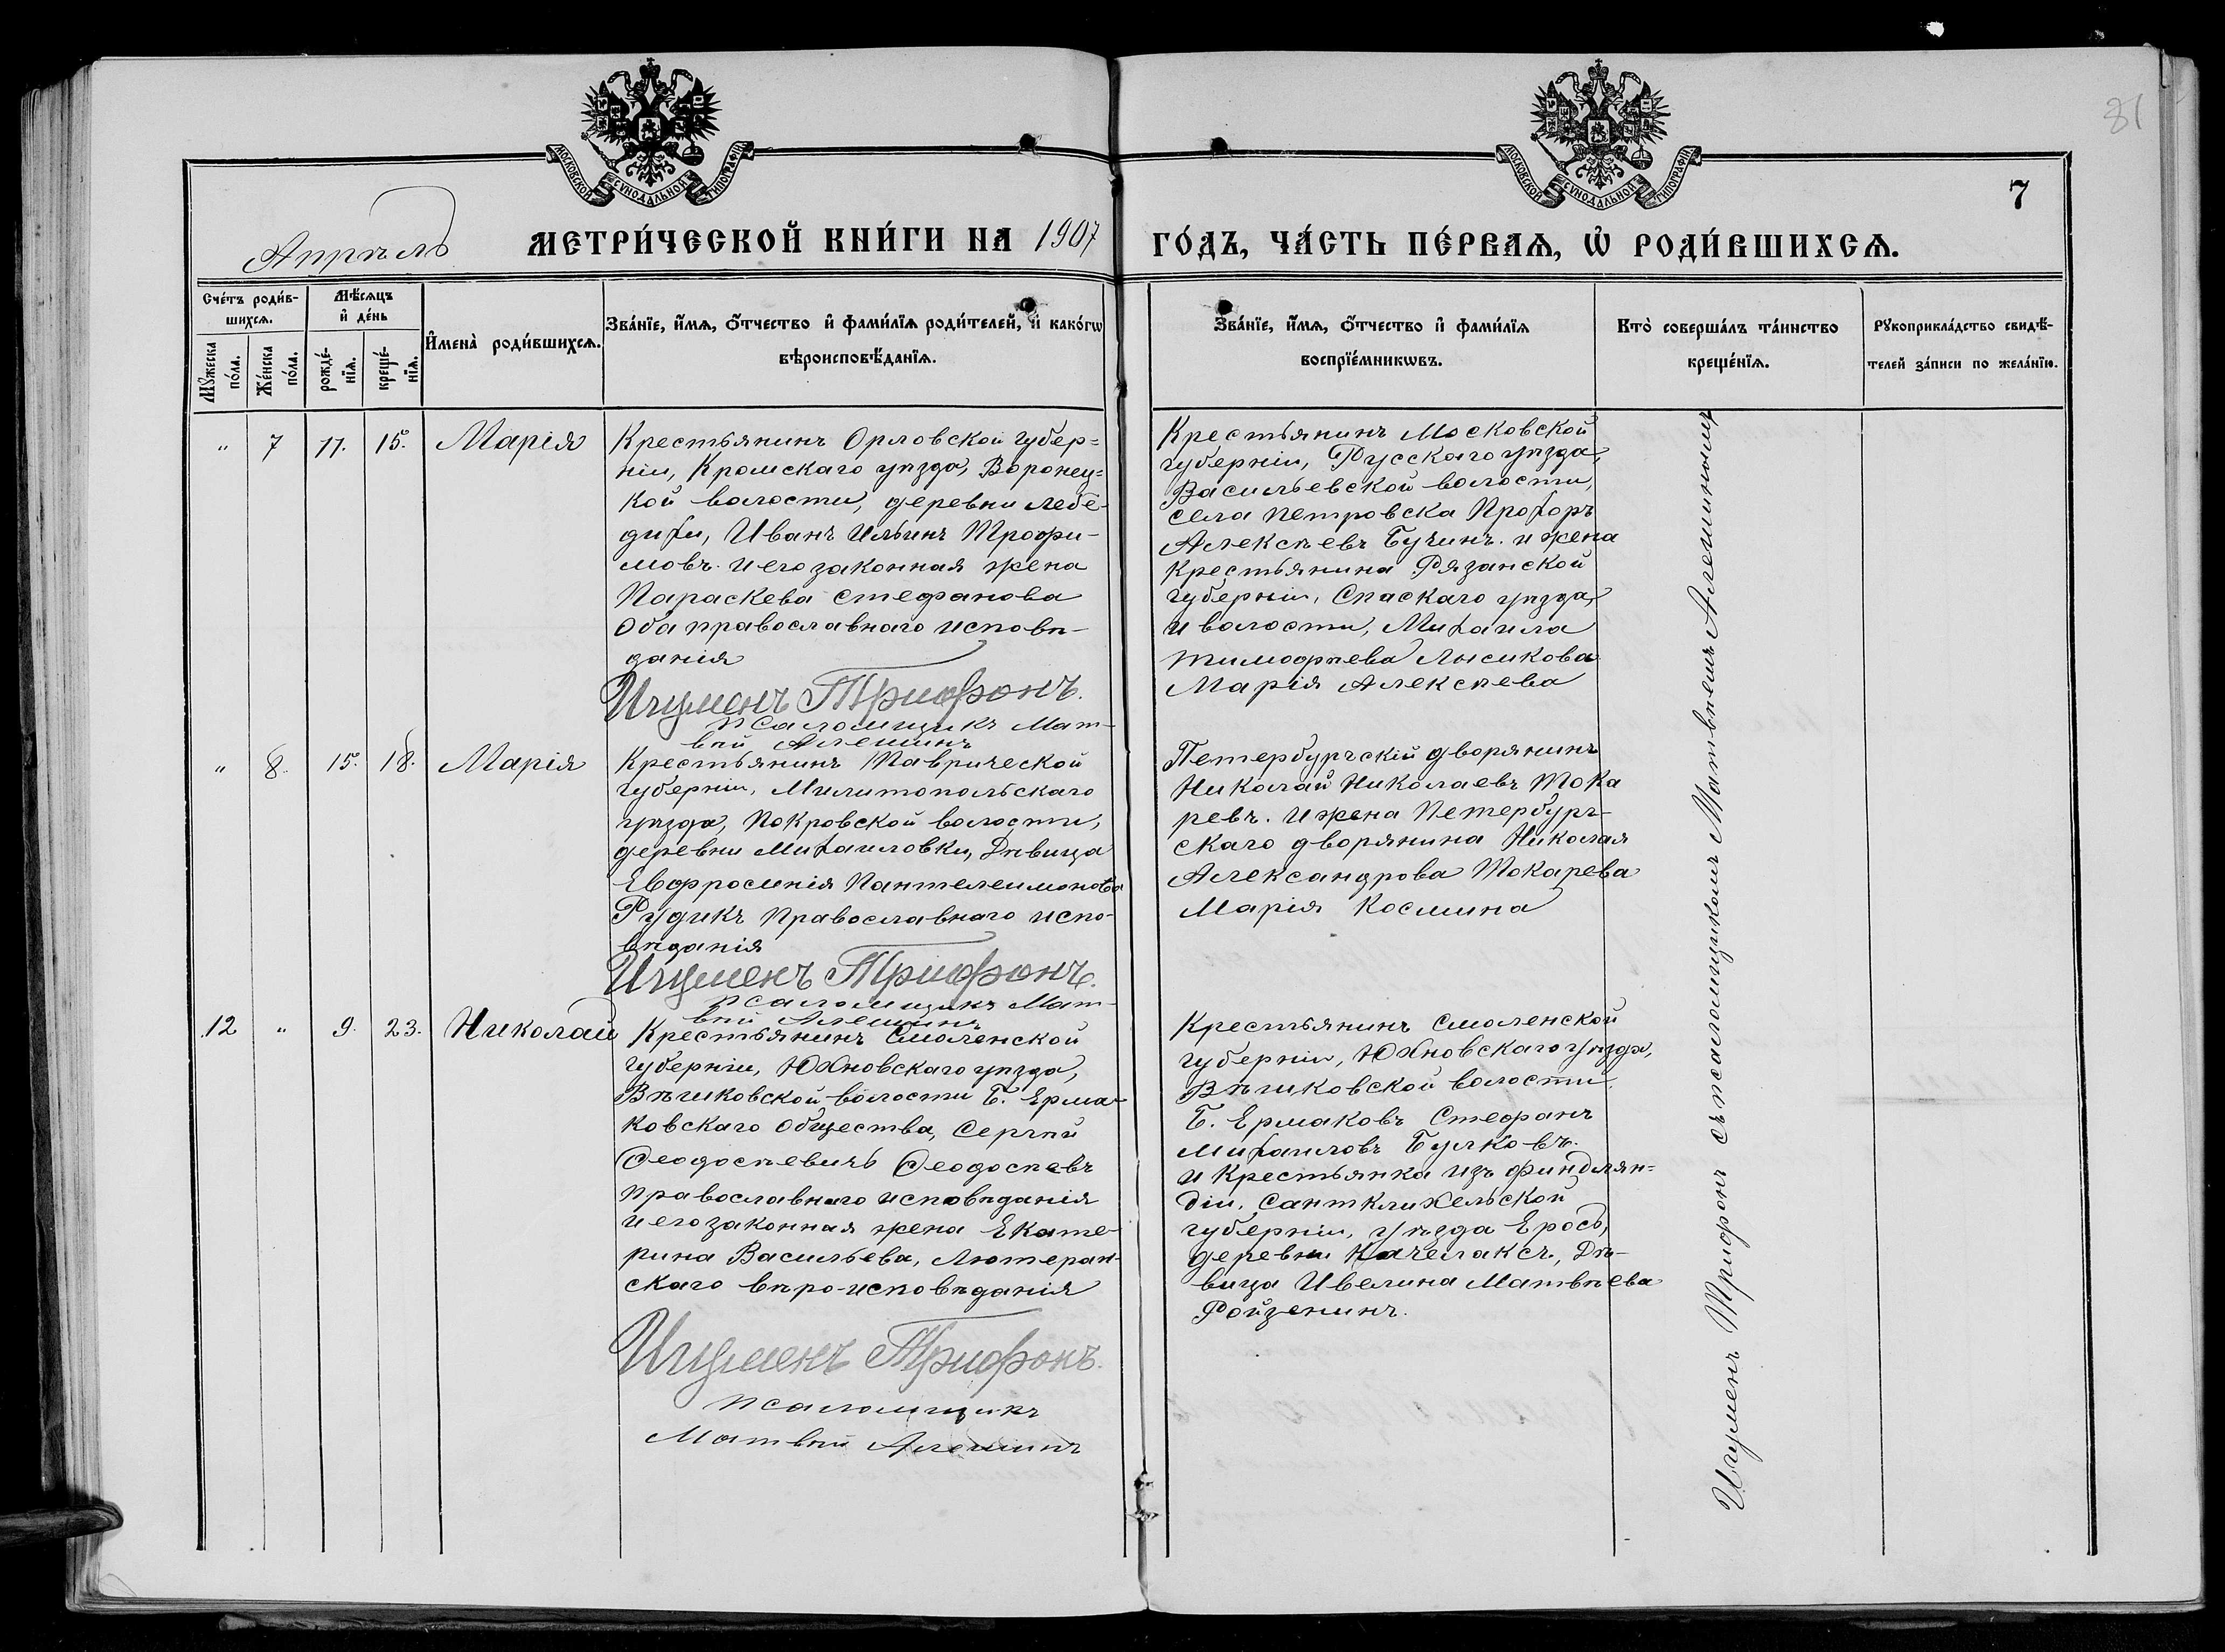 МОСКОВСКОЙ СѴНОДАЛЬНОЙ ТИПОГРАФІИ
МОСКОВСКОЙ СѴНОДАЛЬНОЙ ТИПОГРАФІИ
81
7
Апрѣль
МЕТРИ́ЧЕСКОЙ КНИ́ГИ НА 1907
ГО́ДЪ, ЧА́СТЬ ПЕ́РВАѦ, Ѡ҆ РОДИ́ВШИХСѦ.
Сче́тъ роди́в-
шихсѧ.
Мꙋ́жеска по́ла.
Же́нска по́ла.
Мѣ́сѧцъ
и҆ де́нь
рожде́-нїѧ.
креще́-нїѧ.
И҆мена̀ роди́вшихсѧ.
Зва́нїе, и҆́мѧ, ѻ҆́тчество и҆ фами́лїѧ роди́телей, и҆ како́гѡ
вѣроисповѣ́данїѧ.
Зва́нїе, и҆́мѧ, ѻ҆́тчество и҆ фами́лїѧ
воспрїе́мникѡвъ.
Кто̀ соверша́лъ та́инство
креще́нїѧ.
Рꙋкоприкла́дство свидѣ́-
телей за́писи по жела́нїю.
" 7 11. 15. Марія
Крестьянинъ Орловской губер=
ніи, Кромскаго уѣзда, Воронец=
кой волости, деревни Лебе-
дихи, Иванъ Ильинъ Трофи-
мовъ. и его законная жена
Параскева Стефанова
Оба православнаго исповѣ-
данія
Игуменъ Трифонъ.
Псаломщикъ Мат-
вѣй Алешинъ
Крестьянинъ Московской
губерніи, Русскаго уѣзда,
Васильевской волости,
села Петровска Прохоръ
Алексѣевъ Бучинъ. и жена
Крестьянина Рязанской
губерніи, Спаскаго уѣзда,
и волости, Михаила
Тимофѣева Лысикова
Марія Алексѣева
" 8. 15. 18. Марія
Крестьянинъ Таврической
губерніи, Милитопольскаго
уѣзда, Покровской волости,
деревни Михаиловки, Дѣвица
Евфросинія Пантелеимонова
Рудикъ Православнаго испо-
вѣданія
Игуменъ Трифонъ.
Псаломщикъ Мат-
вѣй Алешинъ
Петербургскій дворянинъ
Николай Николаевъ Тока
ревъ. и жена Петербург-
скаго дворянина Николая
Александрова Токарева
Марія Космина
12 " 9. 23. Николай
Крестьянинъ Смоленской
губерніи, Юхновскаго уѣзда,
Вѣшковской волости Б. Ерма-
ковскаго Общества, Сергѣй
Ѳеодосѣевичъ Ѳеодосѣевъ
Православнаго исповѣданія
и его законная жена Екате-
рина Васильева, Лютеран-
скаго вѣро-исповѣданія
Игуменъ Трифонъ.
Псаломщикъ
Матвѣй Алешинъ
Крестьянинъ Смоленской
губерніи, Юхновскаго уѣзда,
Вѣшковской волости.
Б. Ермаковъ Стефанъ
Михаиловъ Булковъ.
и Крестьянка изъ Финдлян=
діи. Сантклихельской
губерніи, уѣзда Еросъ,
деревни Качелаксъ., Дѣ-
вица Ивелина Матвѣева
Ройзенинъ.
Игуменъ Трифонъ съ псаломщикомъ Матвѣемъ Алешинымъ